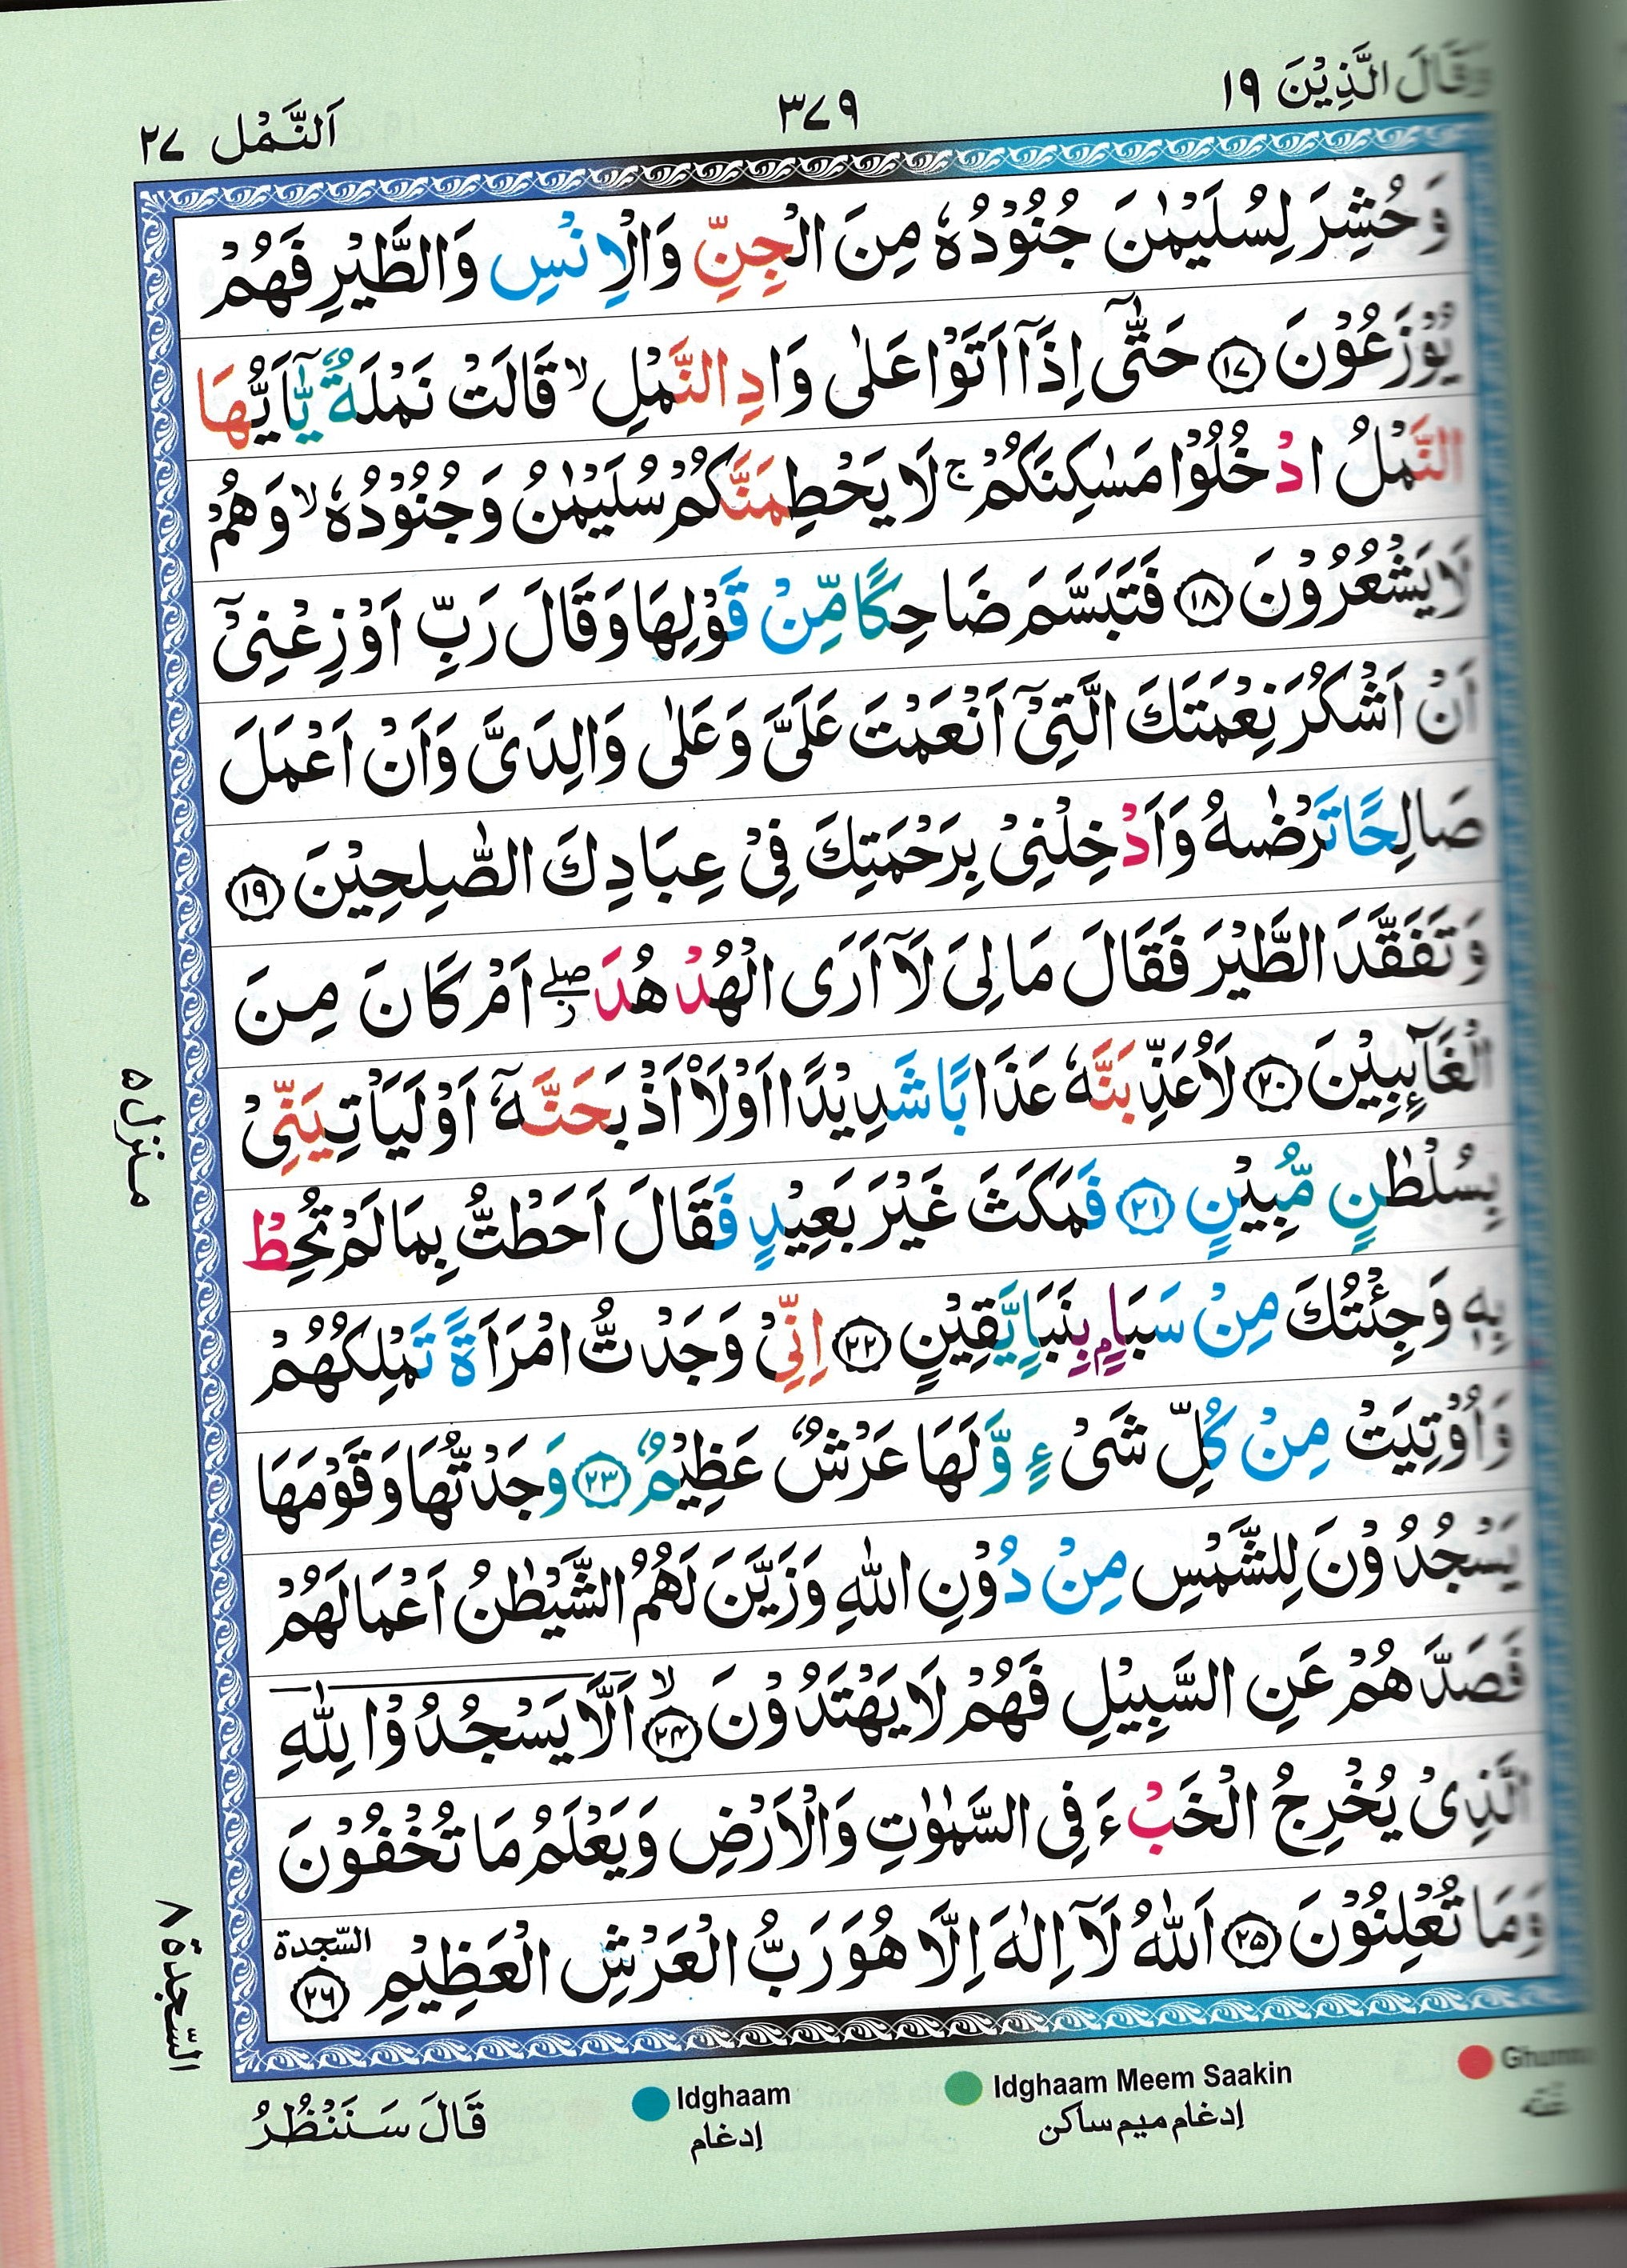 وَقَالَ الَّذِيْنَ ١٩
٣٧٩
اَلنَّمْل ٢٧
وَحُشِرَ لِسُلَيْمٰنَ جُنُوْدُهٗ مِنَ الْجِنِّ وَالْاِنْسِ وَالطَّيْرِ فَهُمْ
يُوْزَعُوْنَ ۝١٧ حَتّٰٓى اِذَآ اَتَوْا عَلٰى وَادِ النَّمْلِ ۙ قَالَتْ نَمْلَةٌ يّٰٓاَيُّهَا
النَّمْلُ ادْخُلُوْا مَسٰكِنَكُمْ ۚ لَا يَحْطِمَنَّكُمْ سُلَيْمٰنُ وَجُنُوْدُهٗ ۙ وَهُمْ
لَا يَشْعُرُوْنَ ۝١٨ فَتَبَسَّمَ ضَاحِكًا مِّنْ قَوْلِهَا وَقَالَ رَبِّ اَوْزِعْنِىْٓ
اَنْ اَشْكُرَ نِعْمَتَكَ الَّتِىْٓ اَنْعَمْتَ عَلَىَّ وَعَلٰى وَالِدَىَّ وَاَنْ اَعْمَلَ
صَالِحًا تَرْضٰىهُ وَاَدْخِلْنِىْ بِرَحْمَتِكَ فِىْ عِبَادِكَ الصّٰلِحِيْنَ ۝١٩
وَتَفَقَّدَ الطَّيْرَ فَقَالَ مَا لِىَ لَآ اَرَى الْهُدْهُدَ ۖ اَمْ كَانَ مِنَ
الْغَآئِبِيْنَ ۝٢٠ لَاُعَذِّبَنَّهٗ عَذَابًا شَدِيْدًا اَوْ لَاَاْذْبَحَنَّهٗٓ اَوْ لَيَاْتِيَنِّىْ
بِسُلْطٰنٍ مُّبِيْنٍ ۝٢١ فَمَكَثَ غَيْرَ بَعِيْدٍ فَقَالَ اَحَطْتُّ بِمَا لَمْ تُحِطْ
بِهٖ وَجِئْتُكَ مِنْ سَبَاٍۭ بِنَبَاٍ يَّقِيْنٍ ۝٢٢ اِنِّىْ وَجَدْتُّ امْرَاَةً تَمْلِكُهُمْ
وَاُوْتِيَتْ مِنْ كُلِّ شَىْءٍ وَّلَهَا عَرْشٌ عَظِيْمٌ ۝٢٣ وَجَدْتُّهَا وَقَوْمَهَا
يَسْجُدُوْنَ لِلشَّمْسِ مِنْ دُوْنِ اللّٰهِ وَزَيَّنَ لَهُمُ الشَّيْطٰنُ اَعْمَالَهُمْ
فَصَدَّهُمْ عَنِ السَّبِيْلِ فَهُمْ لَا يَهْتَدُوْنَ ۝٢٤ۙ اَلَّا يَسْجُدُوْا لِلّٰهِ
الَّذِىْ يُخْرِجُ الْخَبْءَ فِى السَّمٰوٰتِ وَالْاَرْضِ وَيَعْلَمُ مَا تُخْفُوْنَ
وَمَا تُعْلِنُوْنَ ۝٢٥ اَللّٰهُ لَآ اِلٰهَ اِلَّا هُوَ رَبُّ الْعَرْشِ الْعَظِيْمِ ۝٢٦ السَّجدة
منزل ٥
السّجدة ٨
قَالَ سَنَنْظُرُ
Idghaam
إدغام
Idghaam Meem Saakin
إدغام ميم ساكن
غنّه